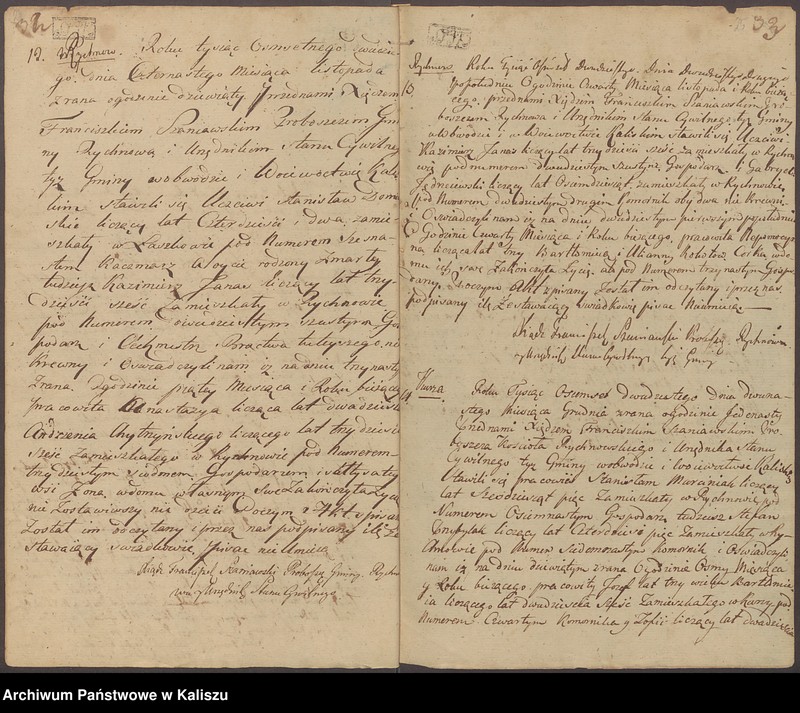 32
12. Rychnow. Roku tysiąc Osmsetnego dwudzieste
go, dnia Czternastego Miesiąca listopada
zrana ogodzinie dziewiąty Przednami Xiędzem
Franciszkiem Szaniawskim Proboszczem Gmi
ny Rychnowa i Urzędnikiem Stanu Cywilnego
tyż Gminy wobwodzie i Woiewodztwie Kalis
kim stawili się Uczciwi Stanisław Dom
skie liczący lat Czterdzieści dwa zamie
szkały w pod Numerem szesna
stem Kaczmarz rodzony zmarły
tudziesz Kazimierz Janas liczący lat trzy
dzieści sześć Zamieszkały w Rychnowie
pod Numerem dwudziestym szustym Gos
podarz i Bractwa tuteyszego, nie
Krewny i Oswiadczyli nam iż na dniu trzynasty
zrana Ogodzinie piąty Miesiąca i Roku bieżącego
pracowita Anastazya licząca lat dwadzieścia
liczącego lat trzydzieści
sześć zamieszkałego w Rychnowie pod Numerem
trzydziestym siodmem Gospodarzem
Żona, wdomu własnym swe Zakończyła Życie
nie zostawiwszy nic dzieci Poczym Akt spisany
Został im odczytany i przez nas podpisany
stawaiący swiadkowie pisac nieumieią
Xiądz Franciszek Szaniawski Proboszcz Gminy Rychno
wa Urzędnik Stanu Cywilnego
33
Rychnow Roku tysiąc Ośmset Dwudziestego, Dnia Dwudziestego Drugiego
13. popołudniu Ogodzinie Czwarty Miesiąca listopada i Roku bieżą
cego, przednami Xiędzem Franciszkiem Szaniawskim Pro
boszczem Rychnowa i Urzędnikiem Stanu Cywilnego tyż Gminy
wobwodzie i Woiewodztwie Kaliskim stawili się Uczciwi
Kazimirz Janas liczący lat trzydzieści sześć zamieszkały w Rychno
wie pod numerem dwudziestym szustym Gospodarz. i Gabryel
Jędniewski liczący lat Osmdziesiąt, zamieszkały w Rychnowie
pod Numerem dwudziestym drugim Komornik oby dwa nie Krewni
i Oswiadczyli nam iż na dniu dwudziestym pierwszym popołudniu
o Godzinie Czwarty Miesiąca i Roku bieżącego, pracowita Nepomocy
na licząca lat trzy Bartłomieia i Maryanny Córka wdo
mu ich swe Zakończyła Życie, pod Numerem trzynastym Gospo
darzy. Poczym Akt spisany Został im odczytany i przez nas
podpisany Zostawaiący swiadkowie pisac Nieumieią
Xiądz Franciszek Szaniawski Proboszcz Rychnowa
Urzędnik Stanu Cywilnego tyż Gminy
Kurza
14. Roku Tysiąc Osiemset dwudziestego Dnia dwuna
stego Miesiąca Grudnia zrana ogodzinie Jedenasty
Przednami Xiędzem Franciszkiem Szaniawskim Pro
boszcza Kościoła Rychnowskiego i Urzędnika Stanu
Cywilnego tyż Gminy wobwodzie i Woiewodztwie Kaliskiego
Stawili się pracowici Stanisław Marciniak liczący
lat Sześćdziesiąt pięć Zamieszkały w Rychnowie pod
Numerem Osiemnastym Gospodarz tudziesz Stefan
liczący lat Czterdzieści pięć Zamieszkały w Ry
chnowie pod Numer Siedemnastym Komornik i Oświadczyli
nam iż na dniu dziewiątym zrana Ogodzinie Osmy Miesiąca
y Roku bieżącego, pracowity Jozef lat trzy wieku Bartłomie
ia liczącego lat dwadzieścia sześć Zamieszkałego w Kurzy pod
Numerem Czwartym Komornika y Zofii liczący lat dwadzieścia
Archiwum Państwowe w Kaliszu